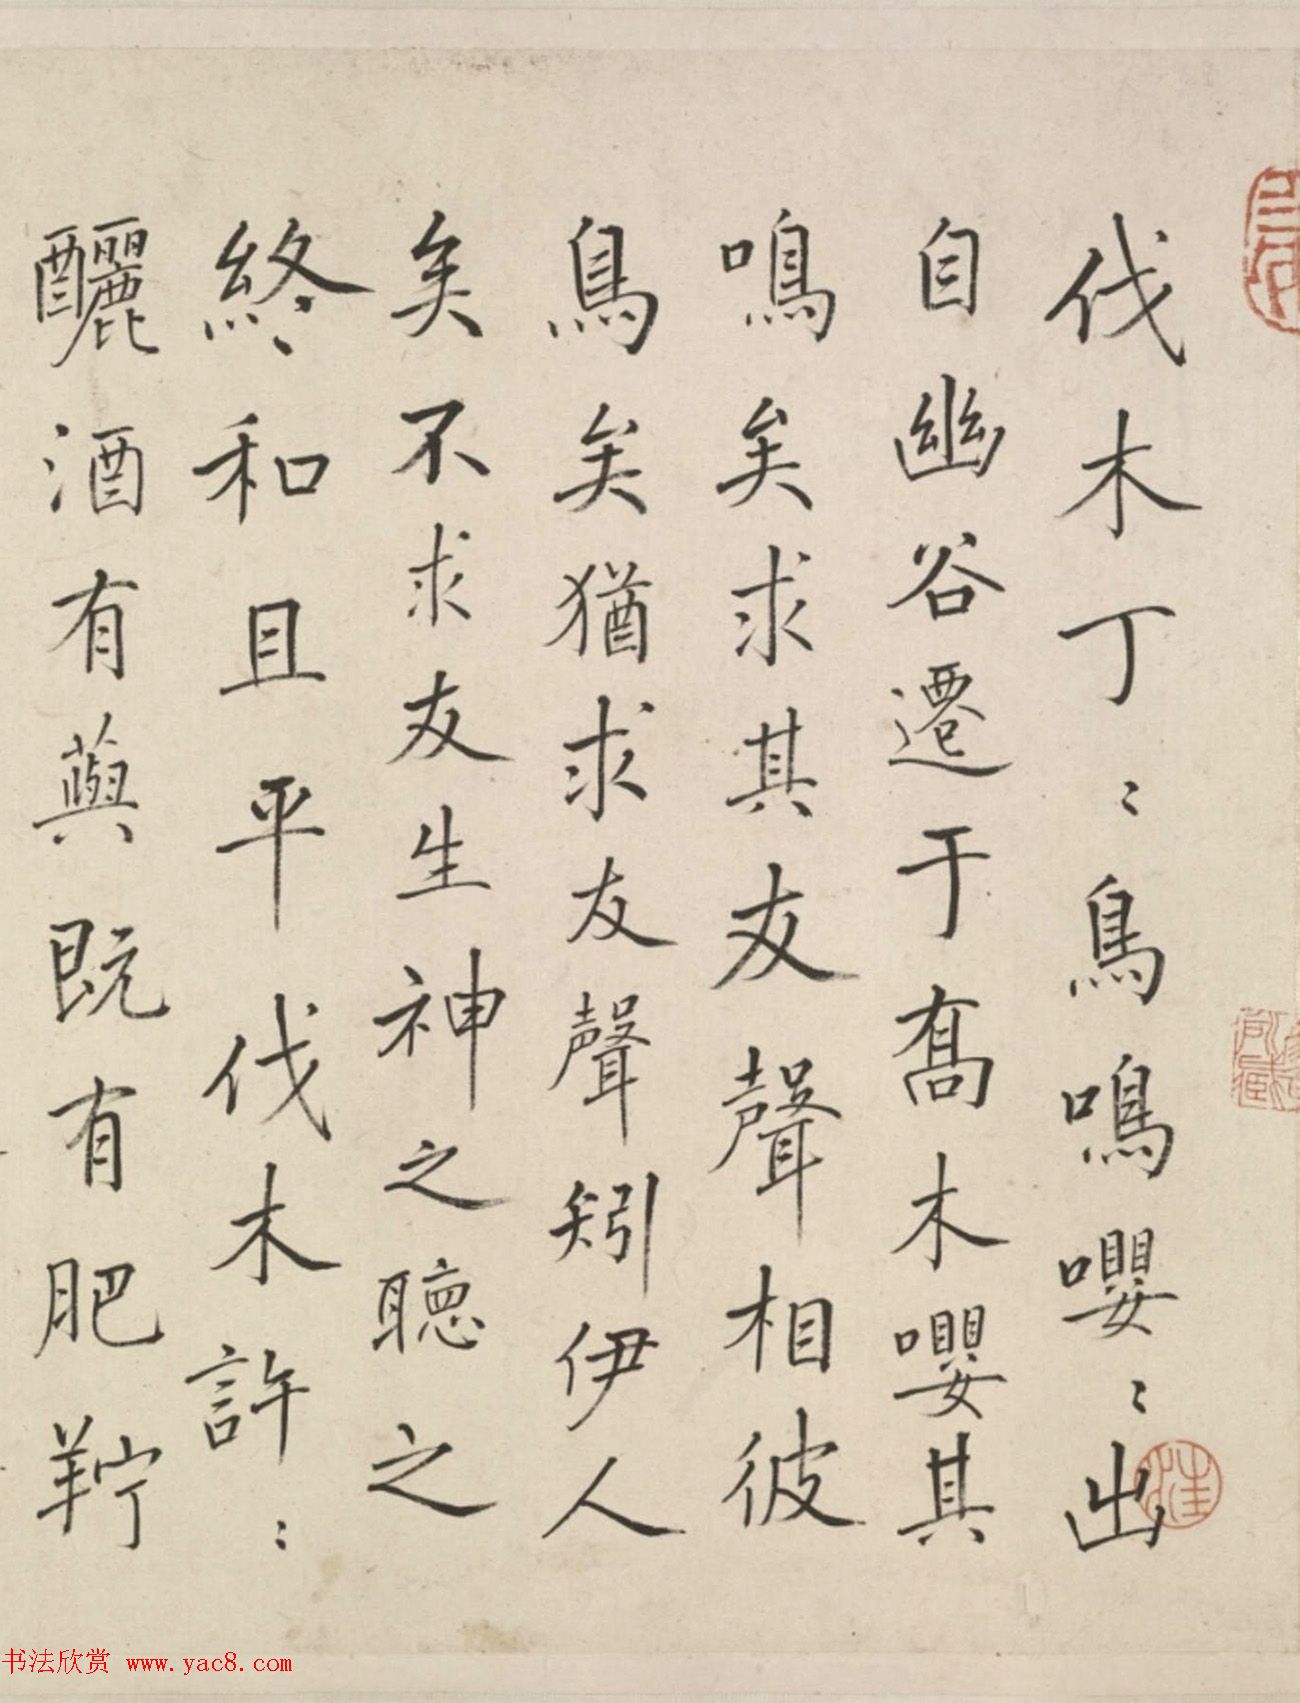 伐木丁〻鳥鳴嚶〻出
自幽谷遷于喬木嚶其
鳴矣求其友聲相彼
鳥矣猶求友聲矧伊人
矣不求友生神之聽之
終和且平伐木許〻
釃酒有藇既有肥羜
书法欣赏 www.yac8.com